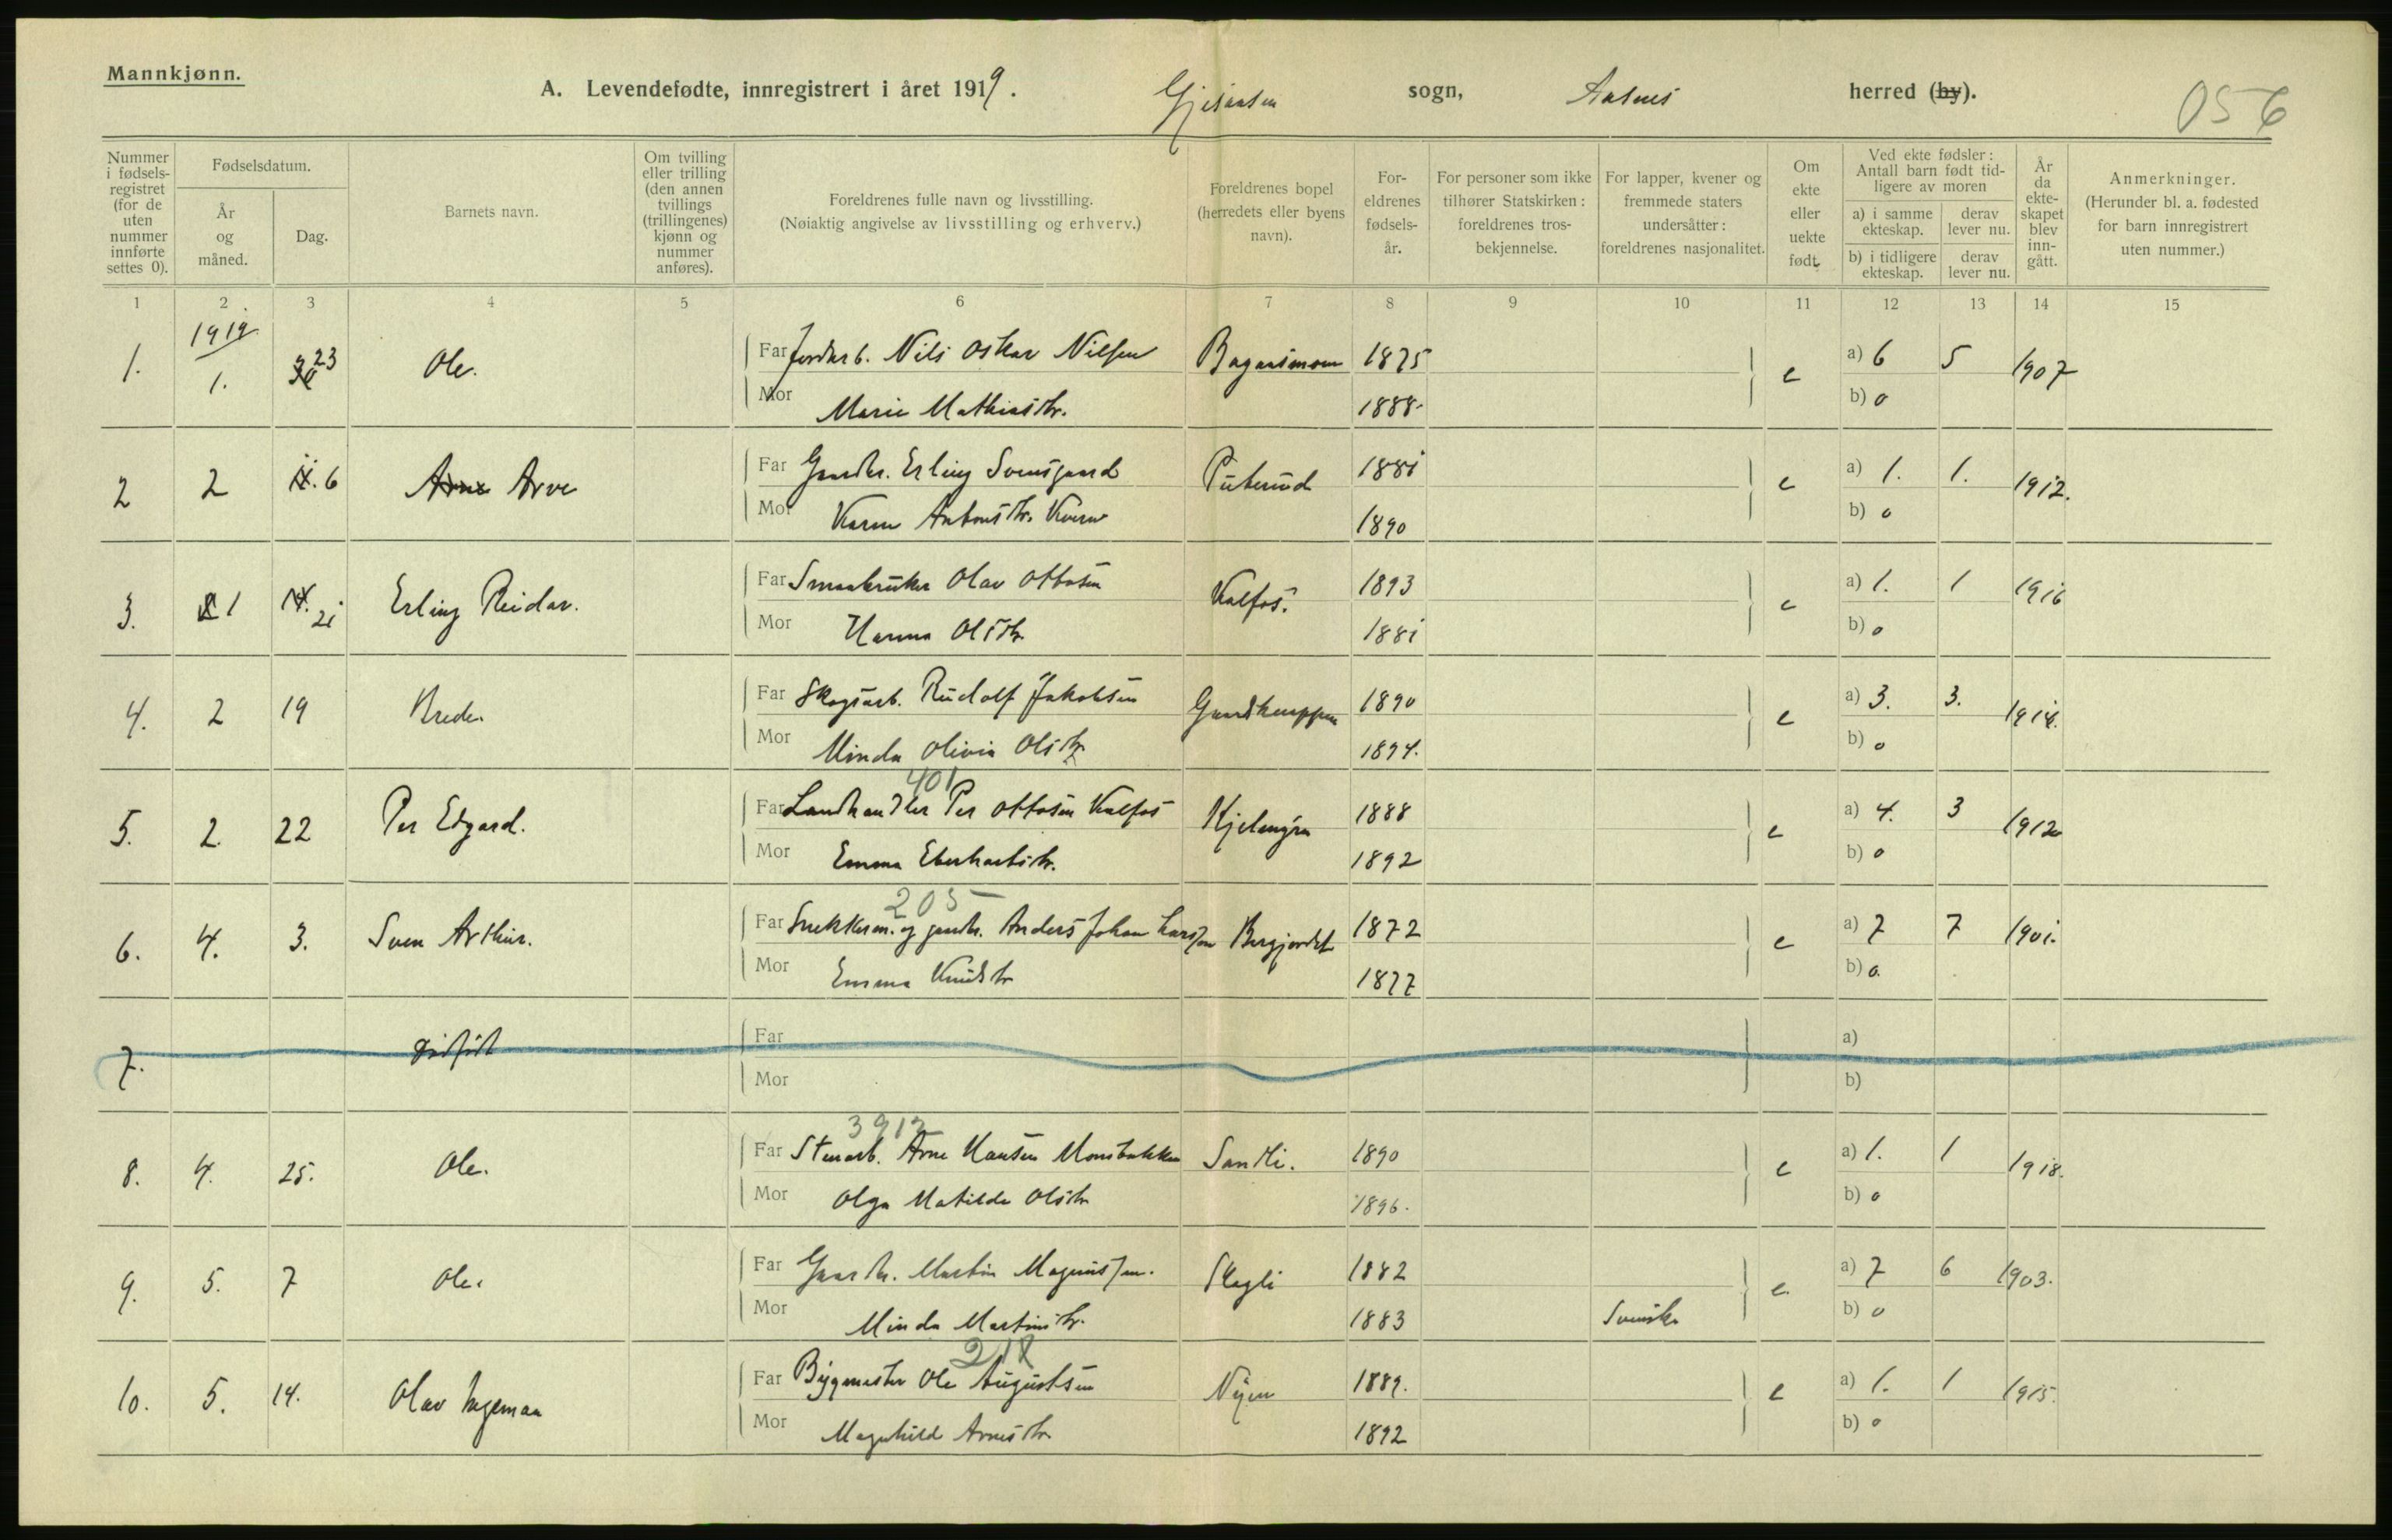 Mannkjønn.
A. Levendefødte, innregistrert i året 1919. Gjesaasen sogn, Aasnes herred (by).
056
Nummer i fødsels-registret (for de uten nummer innførte settes 0).
Fødselsdatum.
År og måned.
Dag.
Barnets navn.
Om tvilling eller trilling (den annen tvillings (trillingenes) kjønn og nummer anføres).
Foreldrenes fulle navn og livsstilling.
(Nøiaktig angivelse av livsstilling og erhverv.)
Foreldrenes bopel (herredets eller byens navn).
For-eldrenes fødsels-år.
For personer som ikke tilhører Statskirken: foreldrenes tros-bekjennelse.
For lapper, kvener og fremmede staters undersåtter: foreldrenes nasjonalitet.
Om ekte eller uekte født
Ved ekte fødsler: Antall barn født tid-ligere av moren
a) i samme ekteskap.
derav lever nu.
b) i tidligere ekteskap.
derav lever nu.
År da ekte-skapet blev inn-gått.
Anmerkninger.
(Herunder bl. a. fødested for barn innregistrert uten nummer.)
1 2 3 4 5 6 7 8 9 10 11 12 13 14 15
1919
1. 1. 23 Ole. Far Jordarb. Nils Oskar Nilsen 1875 e a) 6 5 1907
Mor Marie Mathiasdtr. 1888. b) 0
2 2 6 Arne Arve Far Gaardbr. Erling Svensgaard Puterud 1881 e a) 1. 1. 1912.
Mor Karen Antonsdtr. 1890 b) 0
3. 1 14. 21 Erling Reidar. Far Smaabruker Olav Ottosen Kalfos. 1893 e a) 1. 1 1916
Mor Hanna Olsdtr. 1881 b) 0
4. 2 19 Brede. Far Skogsarb. Rudolf Jakobsen 1890 e a) 3. 3. 1914.
Mor Minda Olivia Olsdtr. 1894. b) 0
401
5. 2. 22 Per Edgard. Far Landhandler Per Ottosen Kalfos 1888 e a) 4. 3 1912
Mor Emma Eberhartsdtr. 1892 b) 0
205
6. 4. 3. Sven Arthur. Far Snekkerm. og gaardbr. Anders Johan Larsen Bergjordet 1872 e a) 7 7 1901.
Mor Emma Knudsdtr. 1877 b) 0.
7. dødfødt Far a)
Mor b)
3912
8. 4. 25. Ole. Far Stenarb. Arne Hansen Monsbakken Sandli. 1890 e a) 1. 1 1918.
Mor Olga Matilde Olsdtr. 1896. b) 0
9. 5. 7 Ole. Far Gaardbr. Martin Magnussen. Skogli 1882 e. a) 7 6 1903.
Mor Minda Martinsdtr. 1883 Svensk b) 0
218
10. 5. 14. Olav Ingeman Far Bygmester Ole Augustsen Nyen 1889. e a) 1. 1 1915.
Mor Magnhild Arnesdtr. 1892 b) 0